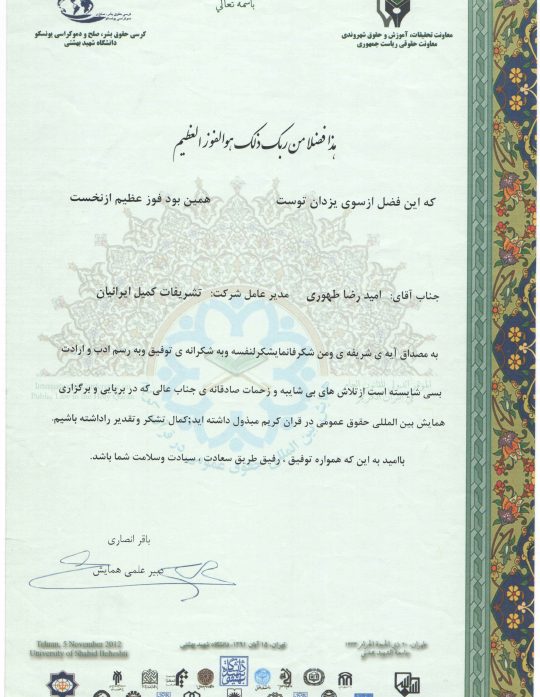 باسمه تعالی
معاونت تحقیقات، آموزش و حقوق شهروندی
معاونت حقوقی ریاست جمهوری
کرسی حقوق بشر، صلح و دموکراسی یونسکو
دانشگاه شهید بهشتی
هذا فضلا من ربک ذلک هوالفوز العظیم
که این فضل ازسوی یزدان توست همین بود فوز عظیم ازنخست
جناب آقای: امید رضا طهوری مدیر عامل شرکت: تشریفات کمیل ایرانیان
به مصداق آیه ی شریفه ی ومن شکرفانمایشکرلنفسه وبه شکرانه ی توفیق وبه رسم ادب و ارادت
بسی شایسته است ازتلاش های بی شایبه و زحمات صادقانه ی جناب عالی که در برپایی و برگزاری
همایش بین المللی حقوق عمومی در قران کریم مبذول داشته اید؛کمال تشکر وتقدیر راداشته باشیم.
باامید به این که همواره توفیق ، رفیق طریق سعادت ، سیادت وسلامت شما باشد.
باقر انصاری
دبیر علمی همایش
طهران، ۲۰ ذی الحجة الحرام ۱۴۳۳
جامعة الشهید بهشتی
تهران، ۱۵ آبان ۱۳۹۱، دانشگاه شهید بهشتی
Tehran, 5 November 2012
University of Shahid Beheshti